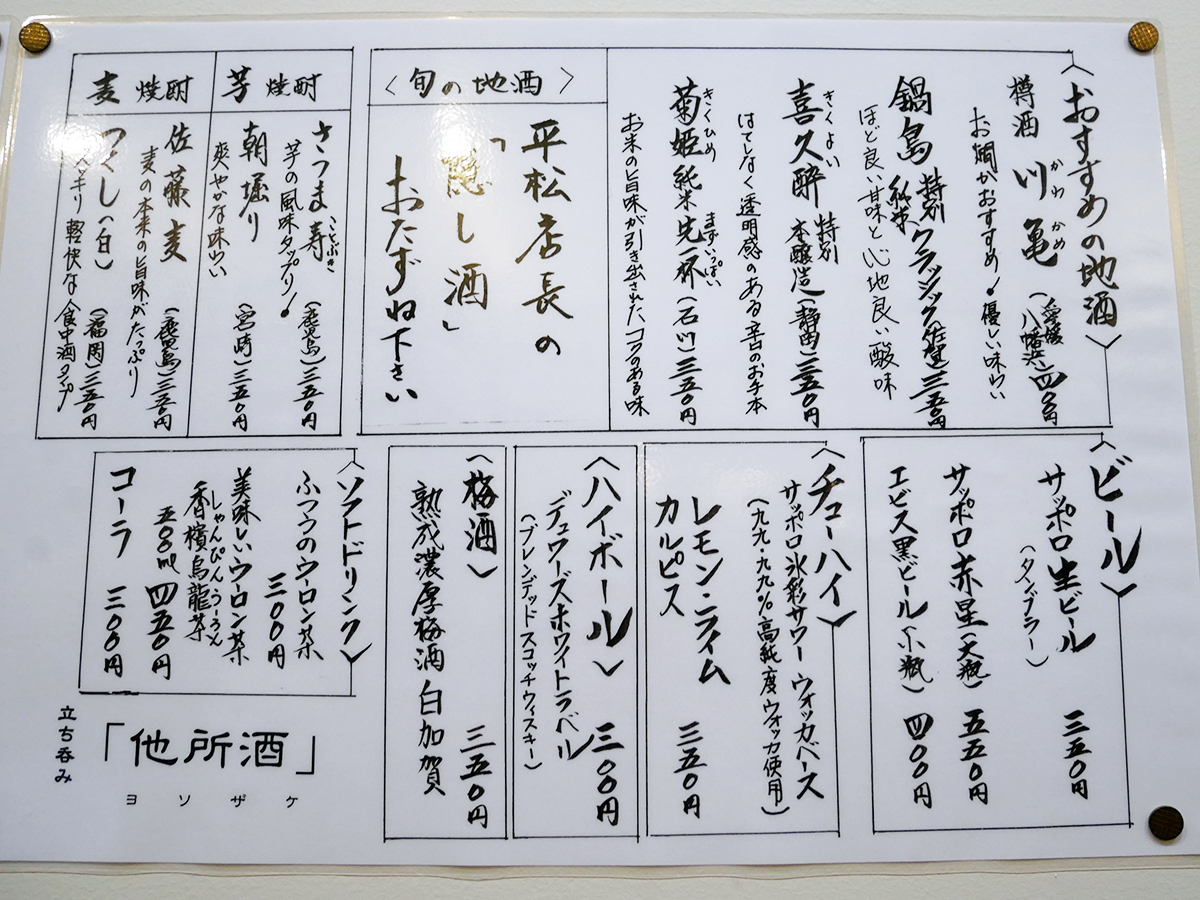 〈おすすめの地酒〉
樽酒 川亀 (愛媛 八幡浜) 四〇〇円
かわ かめ
お燗がおすすめ!優しい味わい
鍋島 特別純米 クラシック(佐賀)三五〇円
ほど良い甘味と心地良い酸味
喜久酔 特別本醸造(静岡)三五〇円
きくよい
はてしなく透明感のある辛口のお手本
菊姫 純米 先一杯(石川)三五〇円
きくひめ まずいっぱい
お米の旨味が引き出されたコクのある味
〈旬の地酒〉
平松店長の
「隠し酒」
おたずね下さい
芋焼酎
さつま寿(鹿児島)三五〇円
ことぶき
芋の風味タップリ!
朝堀り(宮崎)三五〇円
爽やかな味わい
麦焼酎
佐藤 麦(鹿児島)三五〇円
麦の本来の旨味がたっぷり
つくし(白)(福岡)三五〇円
スッキリ軽快な食中酒タイプ
〈ビール〉
サッポロ生ビール 三五〇円
(タンブラー)
サッポロ赤星(大瓶) 五五〇円
エビス黒ビール(小瓶) 四〇〇円
〈チューハイ〉
サッポロ氷彩サワー ウォッカベース
(九九・九九%高純度ウォッカ使用)
レモン・ライム
カルピス 三五〇円
〈ハイボール〉 三〇〇円
デュワーズホワイトラベル
(ブレンデッドスコッチウィスキー)
〈梅酒〉 三五〇円
熟成濃厚梅酒 白加賀
〈ソフトドリンク〉
ふつうのウーロン茶
三〇〇円
美味しいウーロン茶
しゃんぴんうーろん
香檳烏龍茶
五〇〇ml 四五〇円
コーラ 三〇〇円
立ち呑み
「他所酒」
ヨソザケ